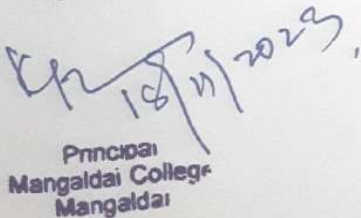 18/11/2023
Principal
Mangaldai College
Mangaldai